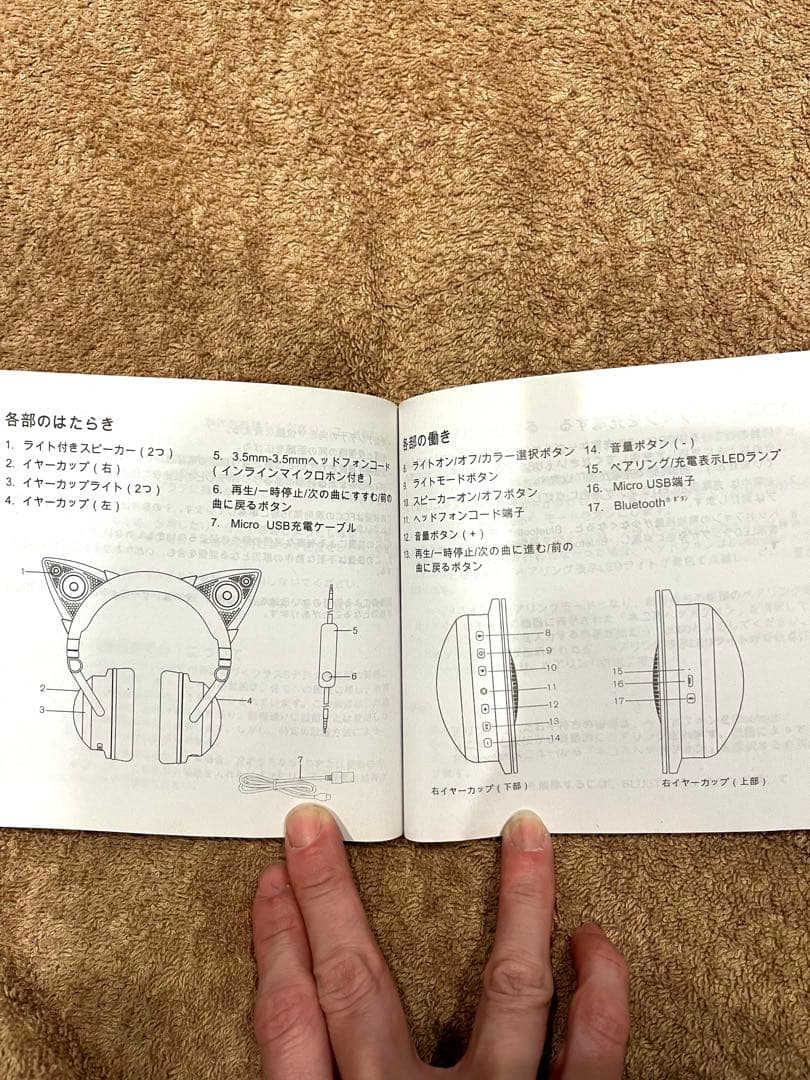 各部のはたらき
1. ライト付きスピーカー ( 2つ )
2. イヤーカップ ( 右 )
3. イヤーカップライト ( 2つ )
4. イヤーカップ ( 左 )
5. 3.5mm-3.5mmヘッドフォンコード
( インラインマイクロホン付き )
6. 再生/一時停止/次の曲にすすむ/前の
曲に戻るボタン
7. Micro USB充電ケーブル
1
2
3
4
5
6
7
各部の働き
8. ライトオン/オフ/カラー選択ボタン
9. ライトモードボタン
10. スピーカーオン/オフボタン
11. ヘッドフォンコード端子
12. 音量ボタン ( + )
13. 再生/一時停止/次の曲に進む/前の
曲に戻るボタン
14. 音量ボタン ( - )
15. ペアリング/充電表示LEDランプ
16. Micro USB端子
17. Bluetooth® ボタン
8
9
10
11
12
13
14
右イヤーカップ ( 下部 )
15
16
17
右イヤーカップ ( 上部 )